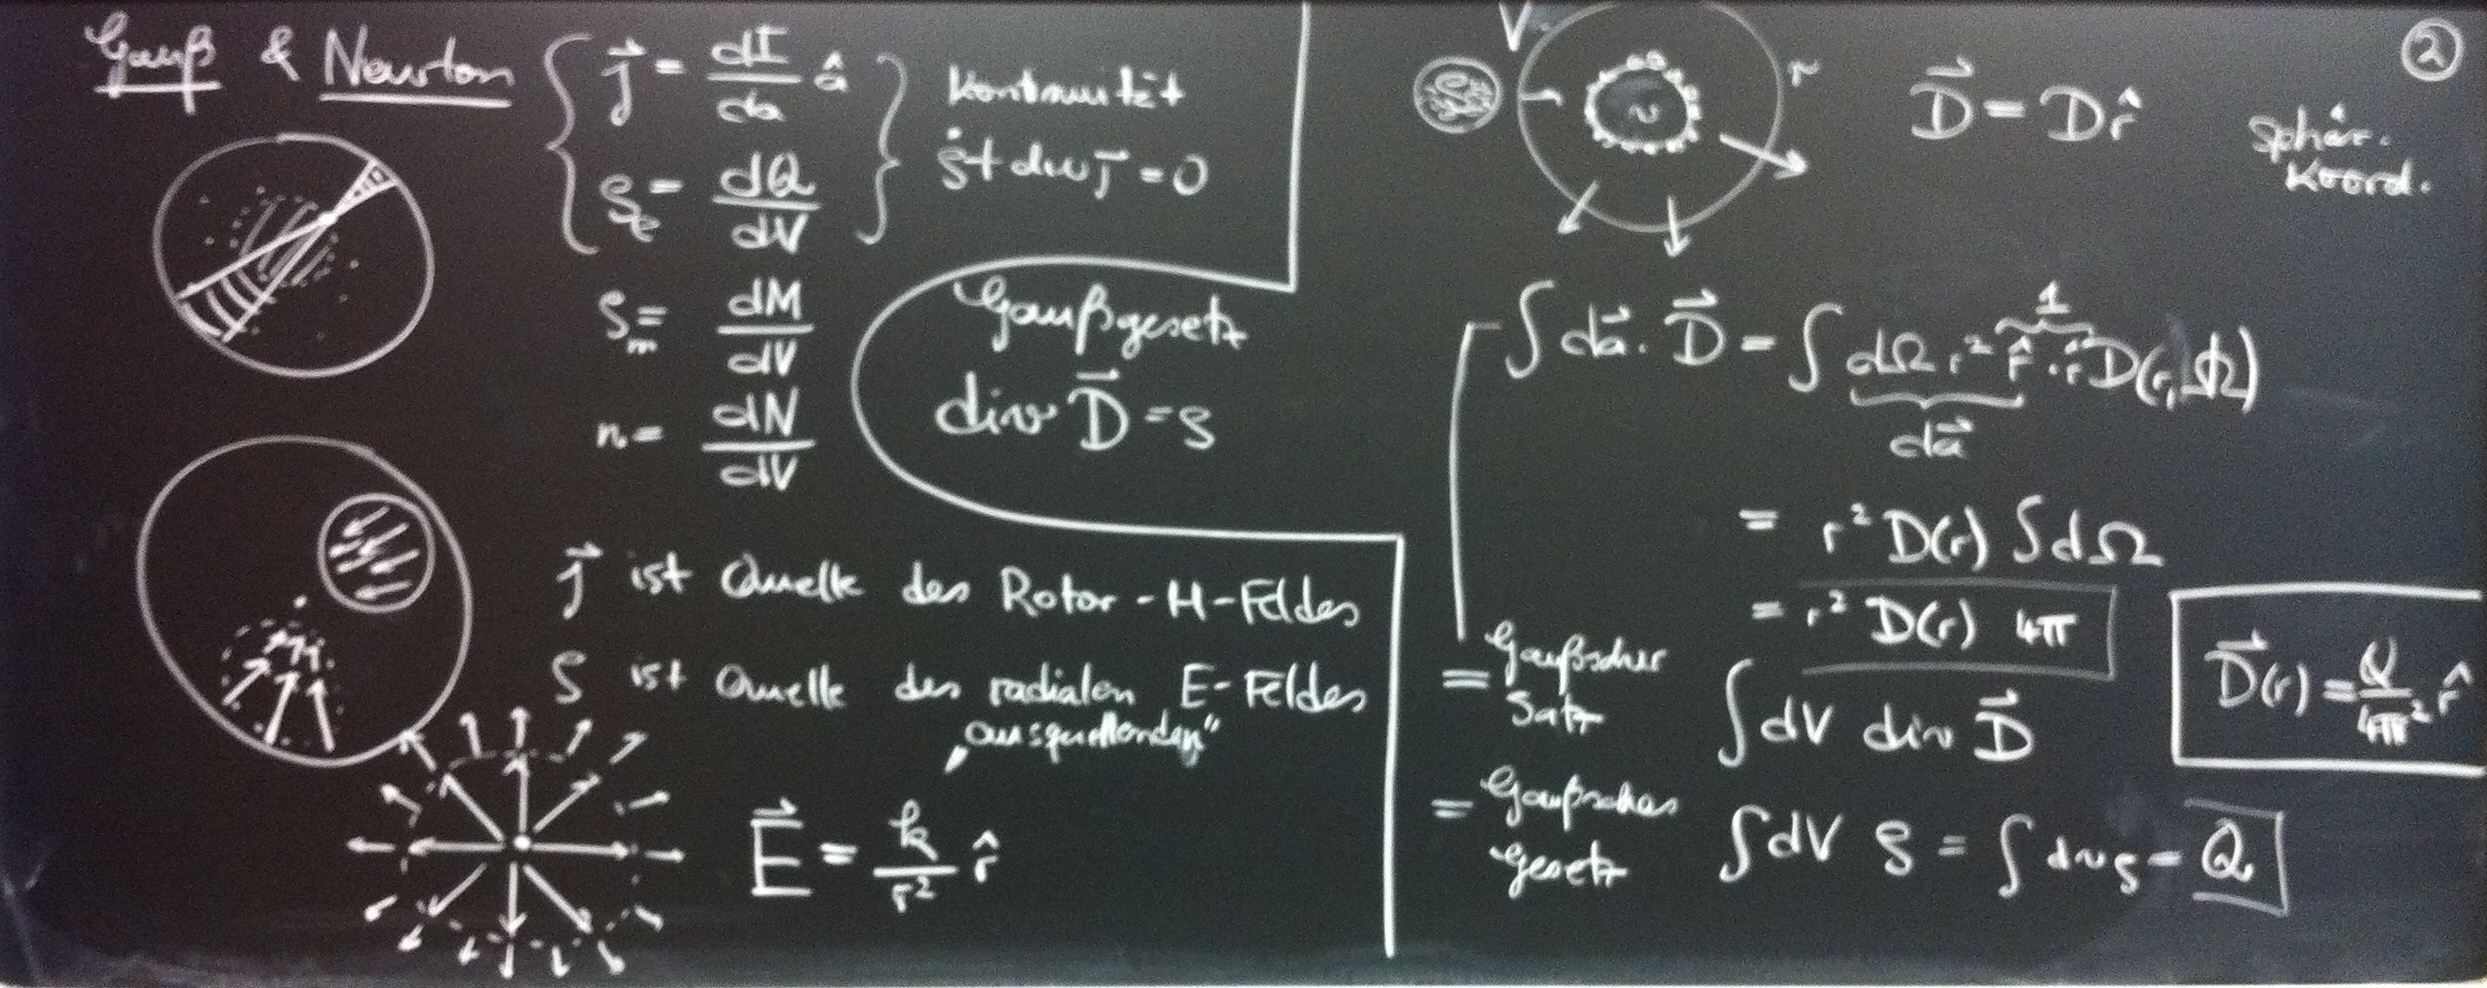 Gauß & Newton
j⃗ = dI/da â
ρ_e = dQ/dV
Kontinuität
ρ̇ + div j⃗ = 0
ρ_m = dM/dV
n = dN/dV
Gaußgesetz
div D⃗ = ρ
j⃗ ist Quelle des Rotor-H-Feldes
ρ ist Quelle des radialen E-Feldes
„ausquellenden"
E⃗ = k/r² r̂
②
V
ρ
v
r
D⃗ = D r̂
sphär.
Koord.
∫ da⃗ · D⃗ = ∫ dΩ r² r̂ · r̂ D(r, Ω)
1
da⃗
= r² D(r) ∫ dΩ
= r² D(r) 4π
= Gaußscher Satz ∫ dV div D⃗
D⃗(r) = Q/4πr² r̂
= Gaußsches Gesetz ∫ dV ρ = ∫ dv ρ = Q